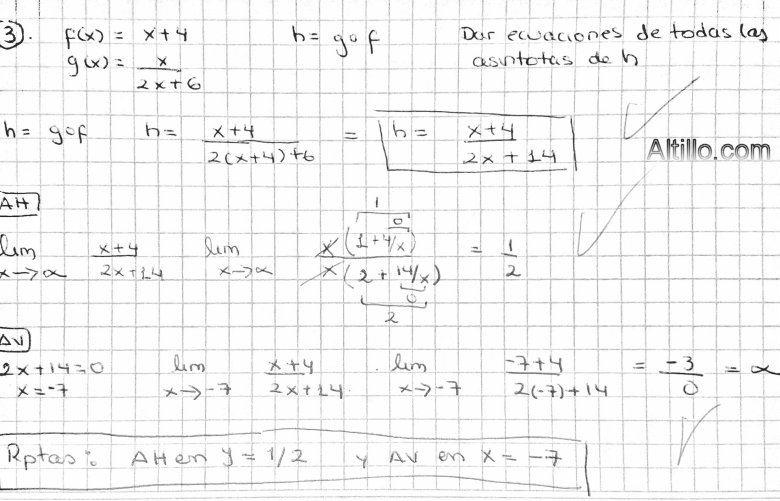 3). f(x) = x+4 h = g∘f Dar ecuaciones de todas las
g(x) = x / 2x+6 asintotas de h
h = g∘f h = x+4 / 2(x+4)+6 = h = x+4 / 2x+14
Altillo.com
AH
1
0
lim x→∝ x+4 / 2x+14 lim x→∝ x(1+4/x) / x(2+14/x) = 1/2
0
2
AV
2x+14=0 lim x→-7 x+4 / 2x+14 . lim x→-7 -7+4 / 2(-7)+14 = -3/0 = ∝
x=-7
Rptas: AH en y = 1/2 y AV en x = -7